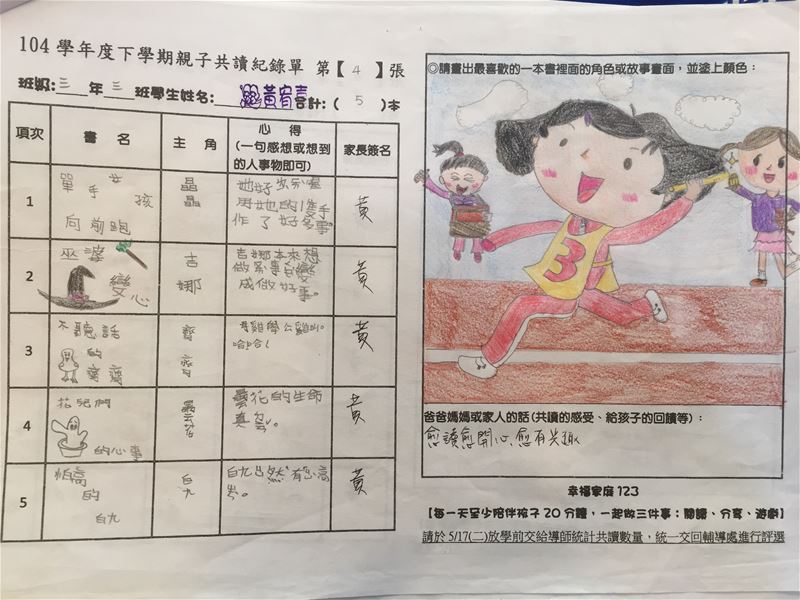 104 學年度下學期親子共讀紀錄單 第【 4 】張
班級:三 年 三 班學生姓名: 黃宥 合計:( 5 )本
項次 書 名 主 角 心 得
(一句感想或想到
的人事物即可) 家長簽名
1
單手女孩
向前跑
晶晶
她好厲害喔
用她的1隻手
作了好多事。
黃
2
巫婆
變心
吉娜
吉娜本來想
做系事變
成做好事。
黃
3
不聽話
的
齊齊
齊齊
母雞學公雞叫。
哈哈!
黃
4
花兒們
的心事
曇花
曇花的生命
真短。
黃
5
怕高
的
白九
白九
白九居然有恐高
黃
◎請畫出最喜歡的一本書裡面的角色或故事畫面,並塗上顏色:
3
爸爸媽媽或家人的話(共讀的感受、給孩子的回饋等):
愈讀愈開心、愈有興趣
幸福家庭 123
【每一天至少陪伴孩子 20 分鐘,一起做三件事:閱讀、分享、遊戲】
請於 5/17(二)放學前交給導師統計共讀數量,統一交回輔導處進行評選